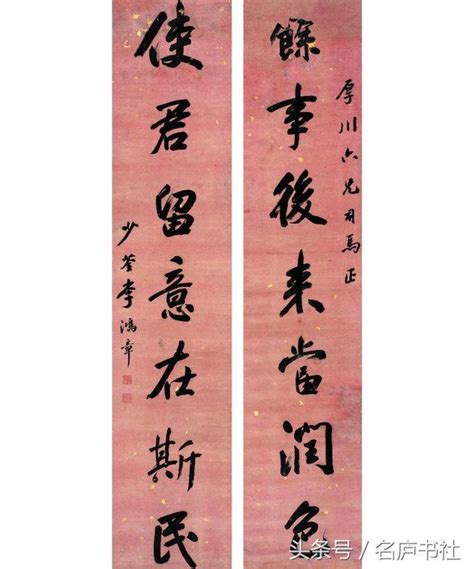 厚川六兄司馬正
餘事後来當潤色
使君留意在斯民
少荃李鴻章
头条号/名庐书社